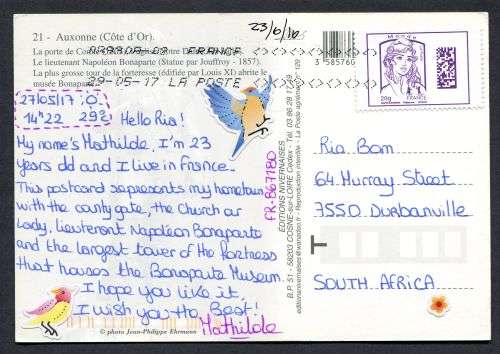 21 - Auxonne (Côte d'Or).
La porte de Co
Le lieutenant Napoléon Bonaparte (Statue par Jouffroy - 1857).
La plus grosse tour de la forteresse (édifiée par Louis XI) abrite le
musée Bonaparte
FRANCE
29-05-17 LA POSTE
23/6/16
3 585760
Monde
20g
FRANCE
27/05/17 :0.
14h22 29°
Hello Ria!
My name's Mathilde, I'm 23
years old and I live in France.
This postcard represents my hometown
with the county gate, the Church our
Lady, lieutenant Napoléon Bonaparte
and the largest tower of the fortress
that houses the Bonaparte Museum.
I hope you like it,
I wish you the Best!
Mathilde
© photo Jean-Philippe Ehrmann
FR-867180
EDITIONS NIVERNAISES
B.P. 51 - 58203 COSNE-sur-LOIRE Cedex - Tél. 03 86 28 17 29
editionsnivernaises@wanadoo.fr - Reproduction interdite - La Poste agrément n° 129
Ria Bom
64 Murray Street
7550 Durbanville
SOUTH AFRICA
T